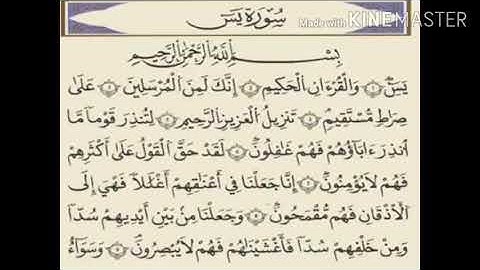 Made with KINEMASTER
سُورَةُ يسٓ
بِسْمِ اللَّهِ الرَّحْمَٰنِ الرَّحِيمِ
يسٓ ١ وَالْقُرْءَانِ الْحَكِيمِ ٢ إِنَّكَ لَمِنَ الْمُرْسَلِينَ ٣ عَلَىٰ
صِرَاطٍ مُّسْتَقِيمٍ ٤ تَنزِيلَ الْعَزِيزِ الرَّحِيمِ ٥ لِتُنذِرَ قَوْمًا مَّا
أُنذِرَ ءَابَاؤُهُمْ فَهُمْ غَافِلُونَ ٦ لَقَدْ حَقَّ الْقَوْلُ عَلَىٰ أَكْثَرِهِمْ
فَهُمْ لَا يُؤْمِنُونَ ٧ إِنَّا جَعَلْنَا فِي أَعْنَاقِهِمْ أَغْلَالًا فَهِيَ إِلَى
الْأَذْقَانِ فَهُم مُّقْمَحُونَ ٨ وَجَعَلْنَا مِن بَيْنِ أَيْدِيهِمْ سَدًّا
وَمِنْ خَلْفِهِمْ سَدًّا فَأَغْشَيْنَاهُمْ فَهُمْ لَا يُبْصِرُونَ ٩ وَسَوَاءٌ